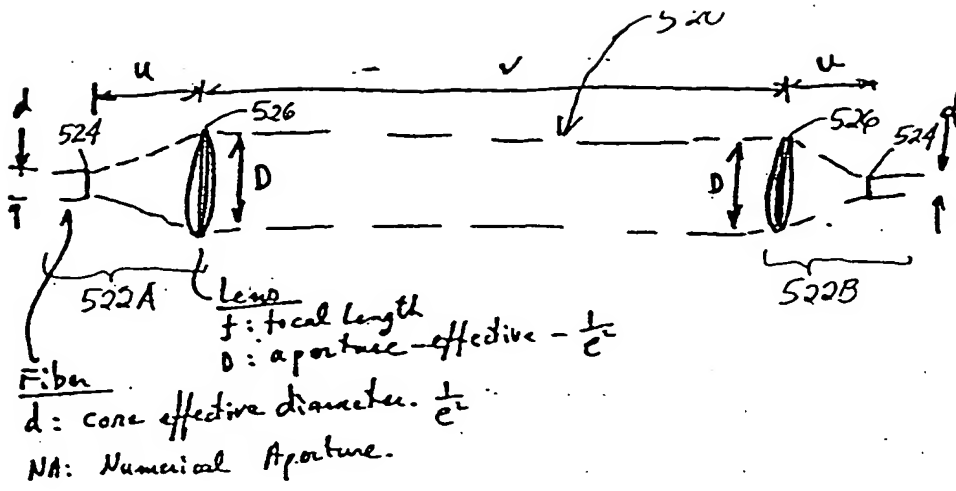 520
u v u
d 524 526 D D 526 524 d
522A 522B
Lens
f: focal length
D: aperture-effective - 1/e²
Fiber
d: core effective diameter. 1/e²
NA: Numerical Aperture.